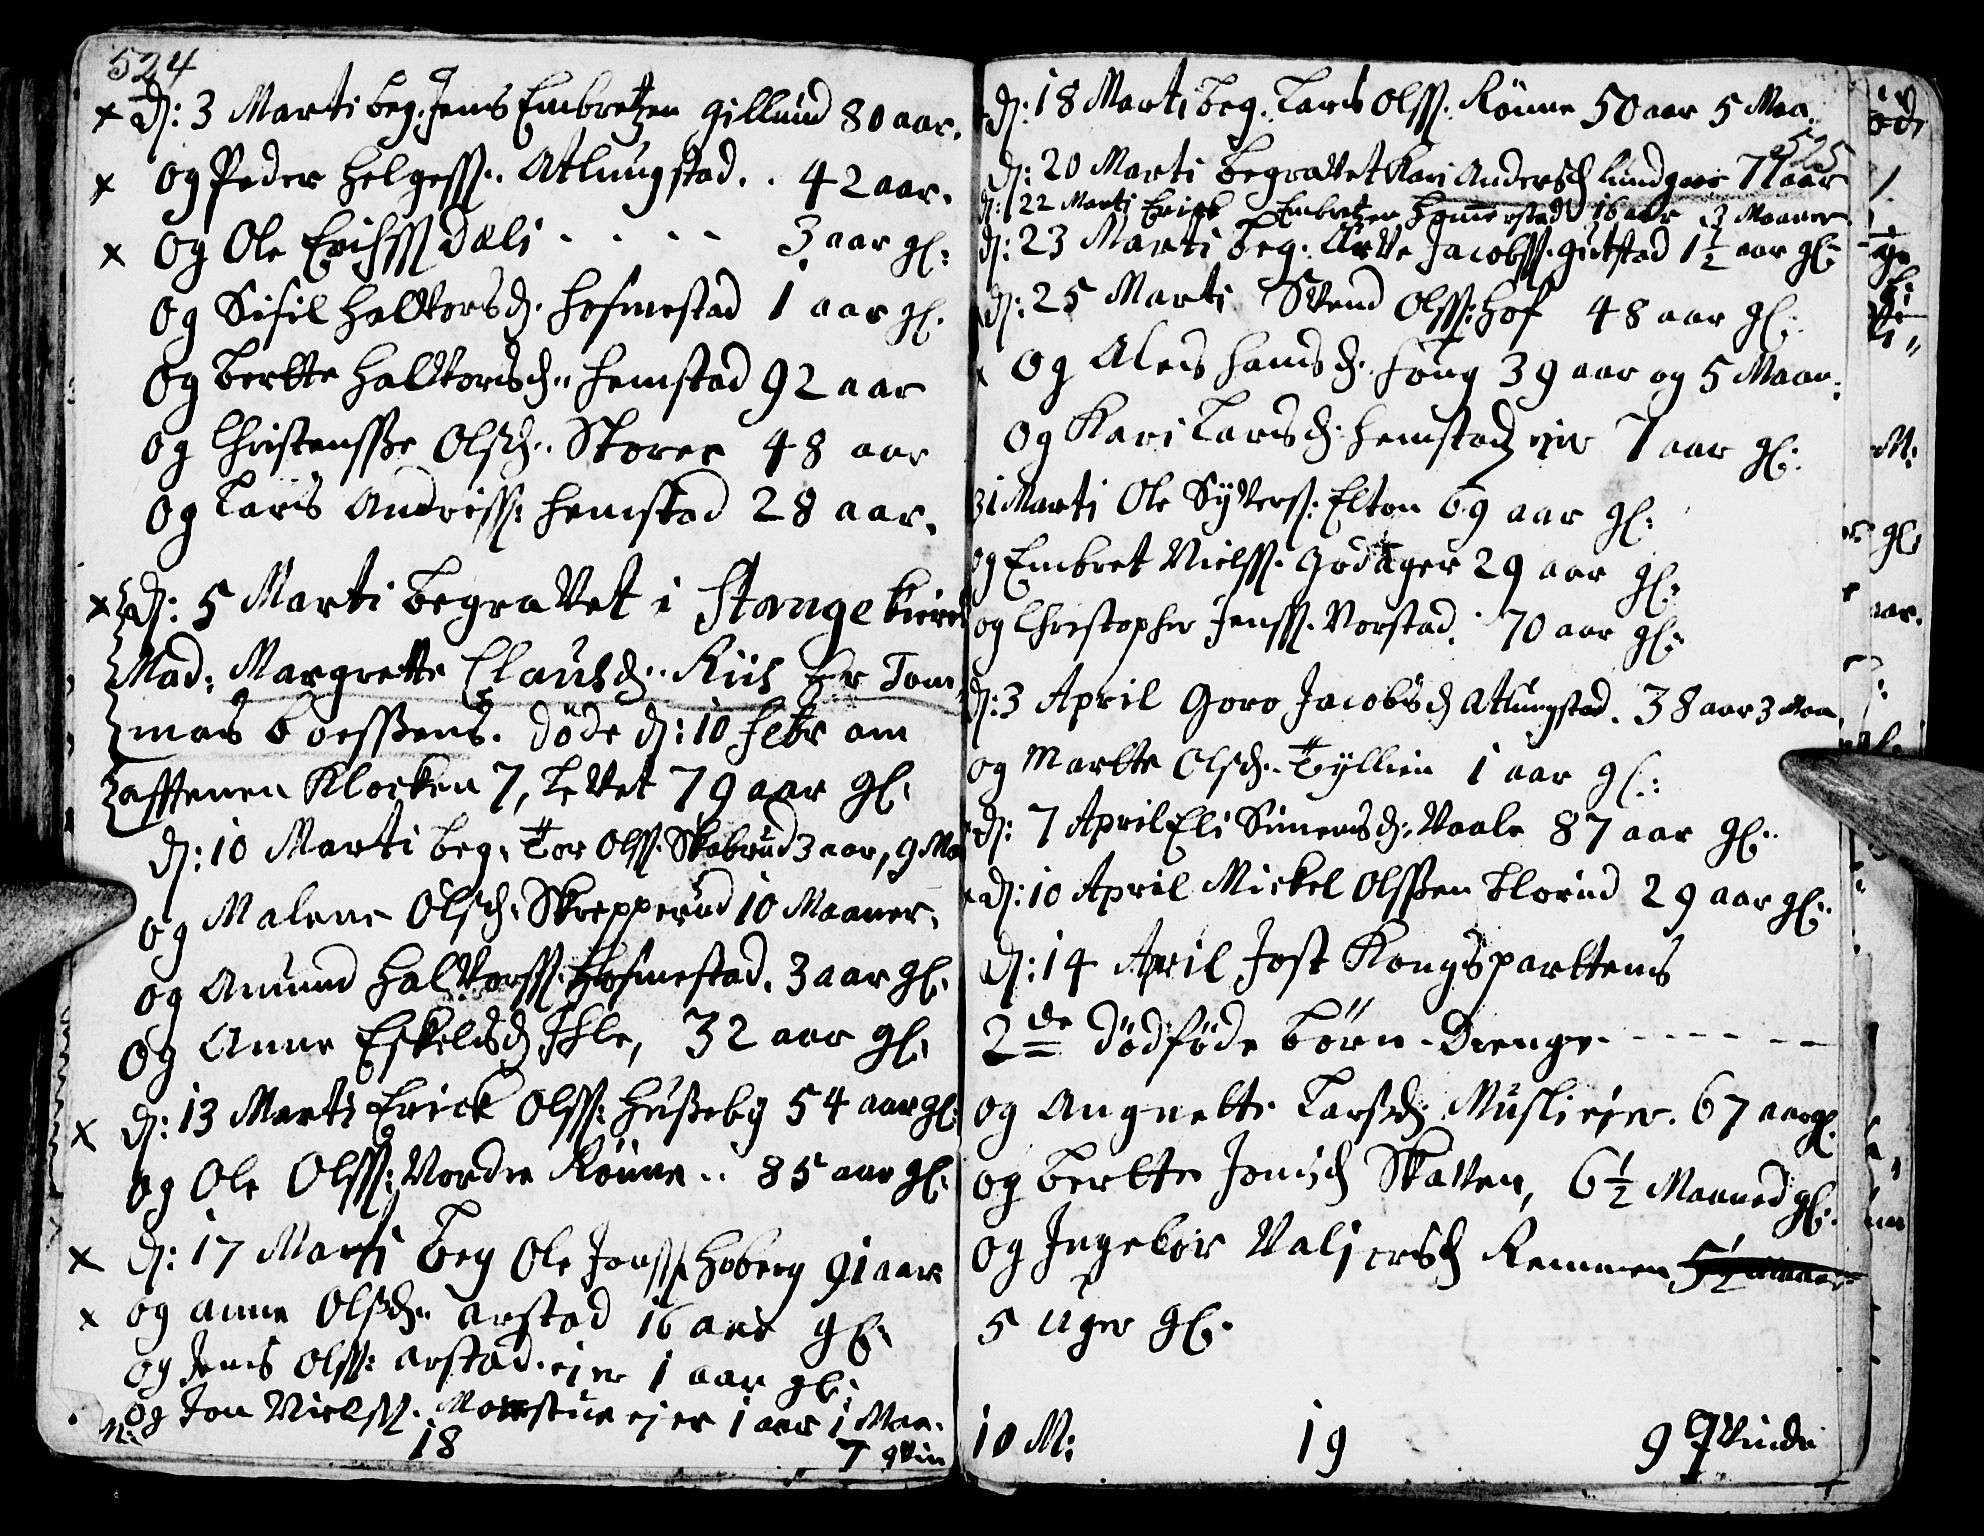 524
x d: 3 Marti beg. Jens Embretzen gillund 80 aar.
x og Peder Helgess. Atlungstad. . 42 aar.
x og Ole Erichss Dæli - - - - 3 aar gl:
og Sisil Halvorsd. Hofmestad 1 aar gl.
og Bertte Halvorsd.. Hemstad 92 aar
og Christensse Olsd.. Storer 48 aar
og Lars Andriss: Hemstad 28 aar.
x d: 5 Marti begravet i Stange kirch
Mad: Margrette Clausd.. Riis Hr Tom,
mas Boessens. døde d: 10 Febr om
afftenen Klocken 7, levet 79 aar gl.
d: 10 Marti beg. Tor Olss. Skabrud 3 aar, 9 Ma
og Malene Olsd. Skrepperud 10 Maaner.
og Amund Halvorss. Hofmestad. 3 aar gl.
og Anne Eskelsd Ihle, 32 aar gl.
x d: 13 Marti Erick Olss: Husseby 54 aar gl:
og Ole Olss: Nordre Rønne .. 85 aar gl:
x d: 17 Marti beg Ole Jonss Hoberg 91 aar
x og anne Olsd.. arstad 16 aar gl.
og Jens Olss: arstad.ejer 1 aar gl:
og Jon Nielss. ejer 1 aar 1 Maa.
M: 18 7 qvin
d: 18 Marti beg. Lars Olss. Rønne 50 aar 5 Maa.
525
d: 20 Marti begravet Kari Andersd Lundgaar 71 aar
d: 22 Marti Erick Embretzen Hommerstad 16 aar 3 Maaner
d: 23 Marti beg. Arve Jacobss. gutstad 1½ aar gl:
d: 25 Marti Svend Olss: Hof 48 aar gl:
x og Aleis Hansd. Houg 39 aar og 5 Maan:
og Kari Larsd. Hemstad ejer 7 aar gl:
31 Marti Ole Syvers: Elton 69 aar gl:
og Embret Nielss. Godager 29 aar gl:
og Christopher Jenss. Norstad. 70 aar gl:
d: 3 April Goro Jacobsd Atlungstad. 38 aar 3 Maa
og Martte Olsd.. Tyllien 1 aar gl.:
d: 7 April Eli Simensd. Vaale 87 aar gl.
d: 10 April Mickel Olssen Blorud 29 aar gl:
d: 14 April Jost Kongsparttens
2de dødføde børn - Drenge. - - - - - -
og Angnette Larsd. Musli ejer. 67 aar gl.
og Bertte Jonsd Skatten, 6½ Maaned gl:
og Ingebor Valjersd Remmen 5½ maaner
5 Uger gl.
10 M: 19 9 Qvinde